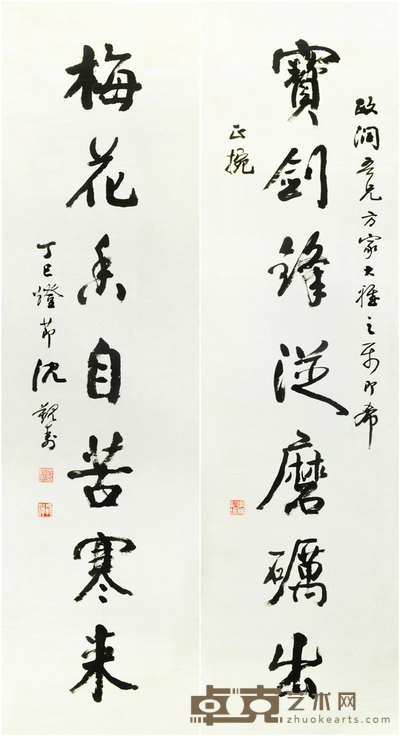 寶劍鋒從磨礪出
政潤吾兄方家大雅之屬即希
正捥
梅花香自苦寒來
丁巳燈節沈觀壽
卓克艺术网
zhuokearts.com